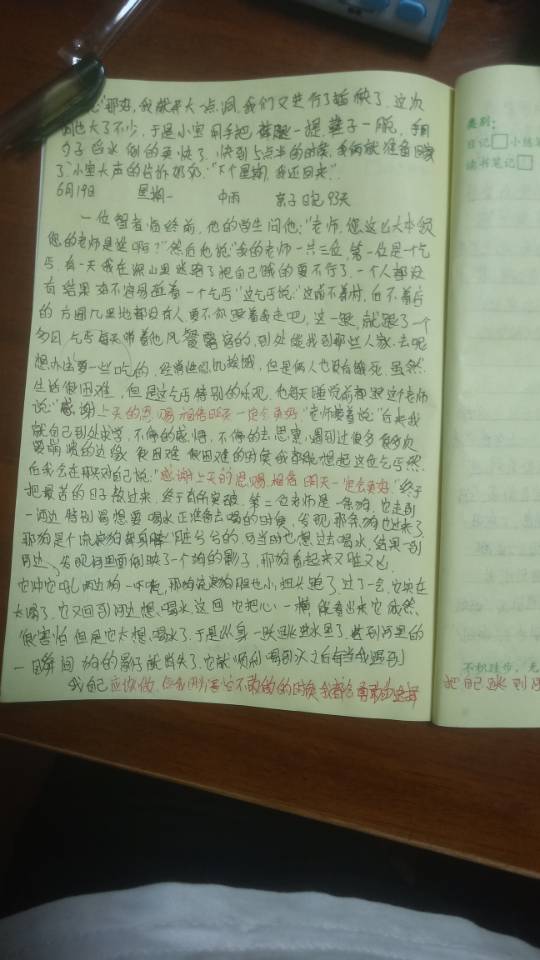 "那好,我就开大一点,同我们又进行了 这次
也大了不少,于是小宝用手把 一提 子一脱,
子 水 倒的更快了,快到5点半的时候,我俩就准备回家
了"小宝大声的告诉奶奶:"下个星期,我还回来"。
6月19日 星期一 中雨 亲子日记93天
一位智者临终前,他的学生问他:"老师,您这么大本领
您的老师是谁啊?"然后他说:"我的老师一共三位,第一位是一个乞
丐,有一天我在深山里迷路了把自己饿的要不行了,一个人都没
有结果好不容易碰着一个乞丐"这乞丐说:"这前不着村,后不着店
的方圆几里地都没有人要不你跟着我走吧,这一跟,就跟了一个
多月,乞丐每天带着他风餐露宿的,到处能找到那些人家去呢
想办法要一些吃的,经常 饥挨饿,但是俩人也没有饿死,虽然
生活很困难,但是这乞丐特别的乐观,他每天睡觉前都跟这个老师
说:"感谢上天的恩赐,相信明天一定会更好"老师接着说:"后来我
就自己到处求学,不停的感悟,不停的去思索,遇到过很多很多次
要崩溃的边缘 很困难 很困难的时候我都能想起这位乞丐然
后我会在那天对自己说:"感谢上天的恩赐,相信明天一定会更好"终于
把最苦的日子熬过来,终于有所突破,第二位老师是一条狗,它走到
一河边 特别渴想要喝水正准备去喝的时候,发现那条狗也过来了
那狗是个流浪狗 脏兮兮的,可当时也想过去喝水,结果一到
河边,发现河里面倒映了一个狗的影子,那狗看起来又脏又凶,
它冲它吼,两边狗一吓唬,那狗流浪狗胆也小,扭头跑了,过了一会,它实在
太渴了,它又回到河边想喝水这回它把心一横 能看出来它虽然
很害怕 但是它太想喝水了,于是纵身一跃跳进水里了,其到河里的
一瞬间 狗的影子就消失了,它就顺利喝到水之后每当我遇到
我自己应该做,但我 不敢做的的时候,我都会勇敢的选择
把自己跳到
类别:
日记 小练笔
读书笔记
不积跬步,无